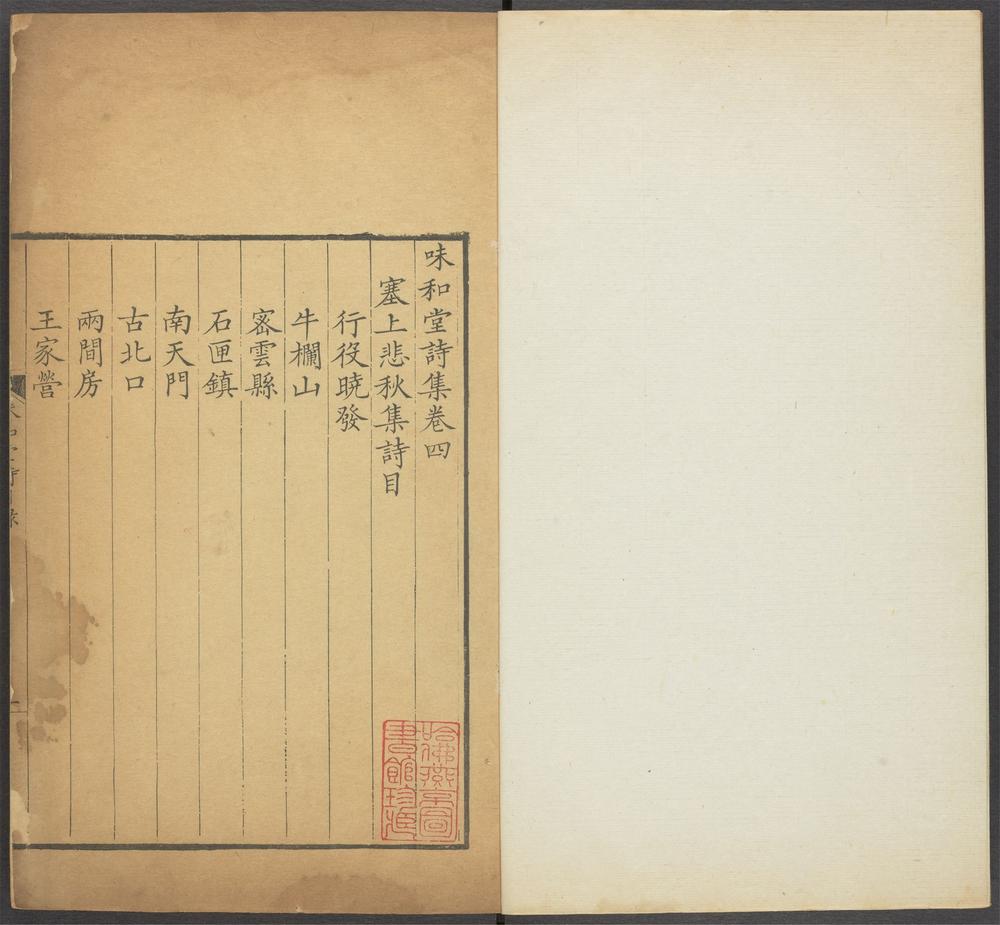 味和堂詩集卷四
塞上悲秋集詩目
行役曉發
牛欄山
宻雲縣
石匣鎮
南天門
古北口
兩間房
王家營
哈佛燕京圖
書館珍藏